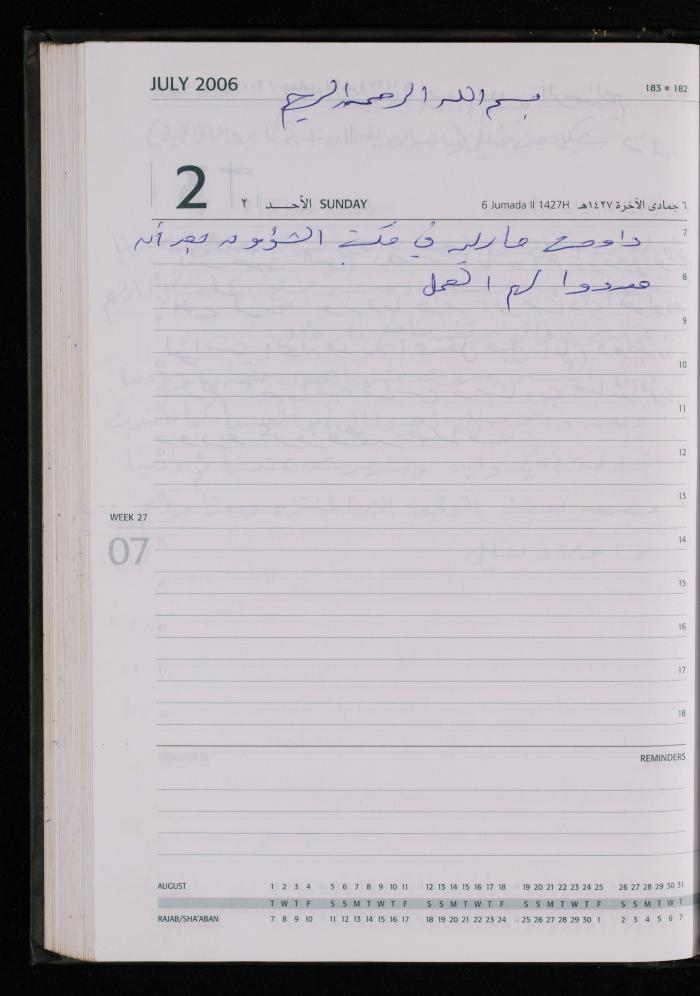 JULY 2006
183 ▪ 182
بسم الله الرحمن الرحيم
2
٢ الأحـــد SUNDAY
6 Jumada II 1427H ٦ جمادى الآخرة ١٤٢٧هـ
7
في مكتب الشؤون بعد أن
8
لهم العمل
9
10
11
12
13
WEEK 27
07
14
15
16
17
18
REMINDERS
AUGUST 1 2 3 4 5 6 7 8 9 10 11 12 13 14 15 16 17 18 19 20 21 22 23 24 25 26 27 28 29 30 31
T W T F S S M T W T F S S M T W T F S S M T W T F S S M T W T
RAJAB/SHA'ABAN 7 8 9 10 11 12 13 14 15 16 17 18 19 20 21 22 23 24 25 26 27 28 29 30 1 2 3 4 5 6 7